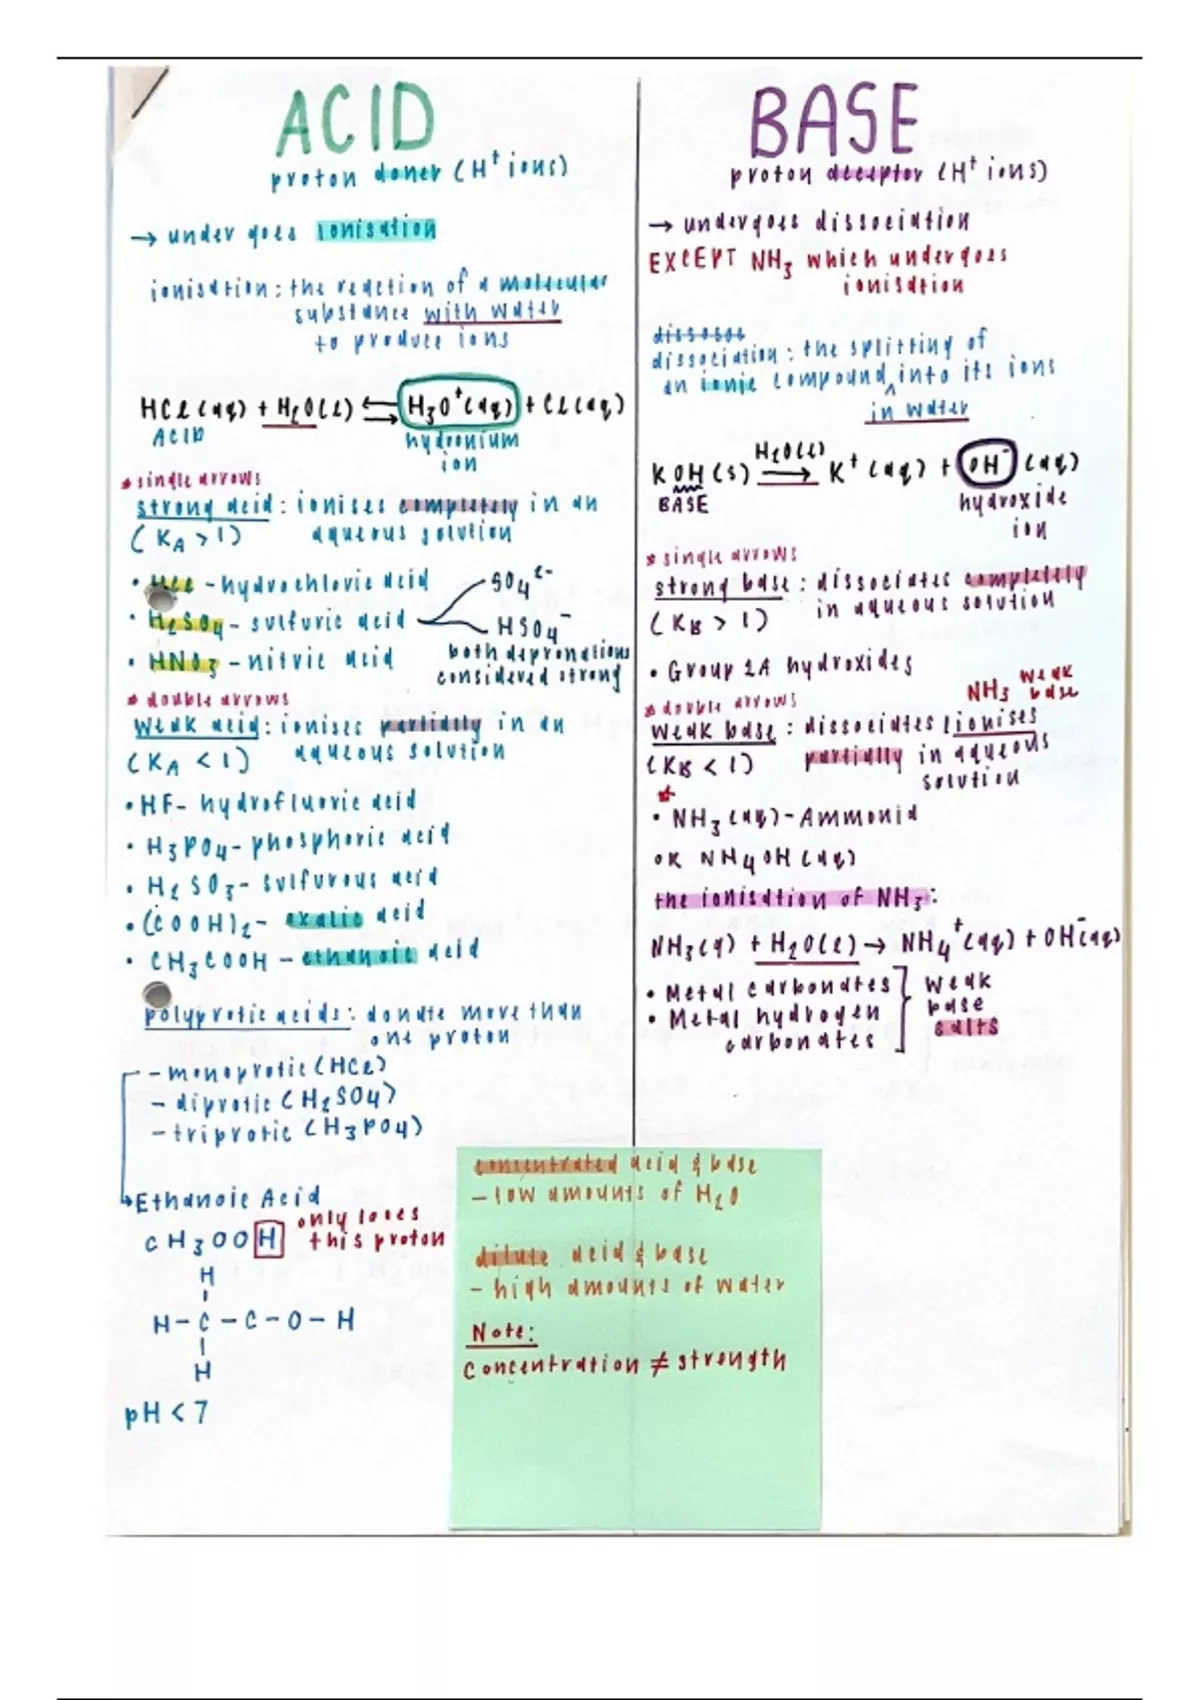 ACID
proton doner (H⁺ ions)
→ under goes ionisation
ionisation : the reaction of a molecular
substance with water
to produce ions
HCl (aq) + H₂O (l) ⇌ H₃O⁺ (aq) + Cl (aq)
ACID
hydronium
ion
* single arrows
strong acid : ionises completely in an
(KA > 1) aqueous solution
• HCl - hydrochloric acid
• H₂SO₄ - sulfuric acid
SO₄²⁻
HSO₄⁻
• HNO₃ - nitric acid
both depronations
considered strong
* double arrows
weak acid : ionises partially in an
(KA < 1) aqueous solution
• HF - hydrofluoric acid
• H₃PO₄ - phosphoric acid
• H₂SO₃ - sulfurous acid
• (COOH)₂ - oxalic acid
• CH₃COOH - ethanoic acid
polyprotic acids : donate more than
one proton
- monoprotic (HCl)
- diprotic (H₂SO₄)
- triprotic (H₃PO₄)
Ethanoic Acid
CH₃OOH only loses
this proton
H
H - C - C - O - H
H
pH < 7
BASE
proton acceptor (H⁺ ions)
→ undergoes dissociation
EXCEPT NH₃ which undergoes
ionisation
dissosos
dissociation : the splitting of
an ionic compound ^ into its ions
in water
KOH (s) H₂O(l) → K⁺ (aq) + OH⁻ (aq)
BASE
hydroxide
ion
* single arrows
strong base : dissociates completely
(KB > 1) in aqueous solution
• Group 1A hydroxides
NH₃ weak
base
* double arrows
weak base : dissociates / ionises
(KB < 1) partially in aqueous
solution
* • NH₃ (aq) - Ammonia
OR NH₄OH (aq)
the ionisation of NH₃ :
NH₃ (g) + H₂O (l) → NH₄⁺ (aq) + OH⁻ (aq)
• Metal carbonates
• Metal hydrogen
carbonates
weak
base
salts
concentrated acid & base
- low amounts of H₂O
dilute acid & base
- high amounts of water
Note :
Concentration ≠ strength